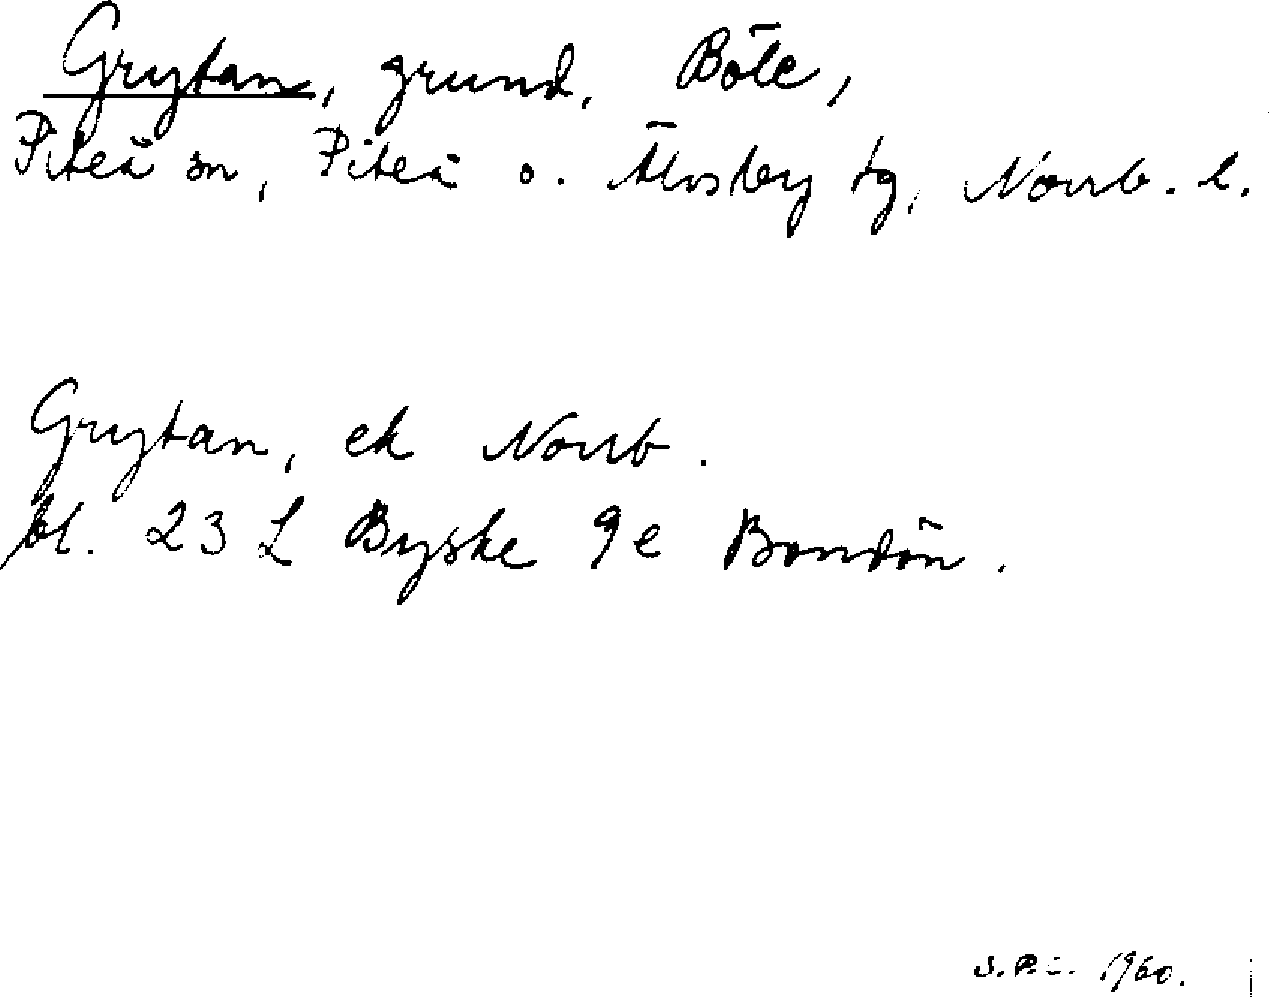 Grytan, grund, Böle,
Piteå sn, Piteå o. Älvsby tg, Norrb. l.
Grytan, ek Norrb.
bl. 23 L Byske 9e Bondön.
1960.